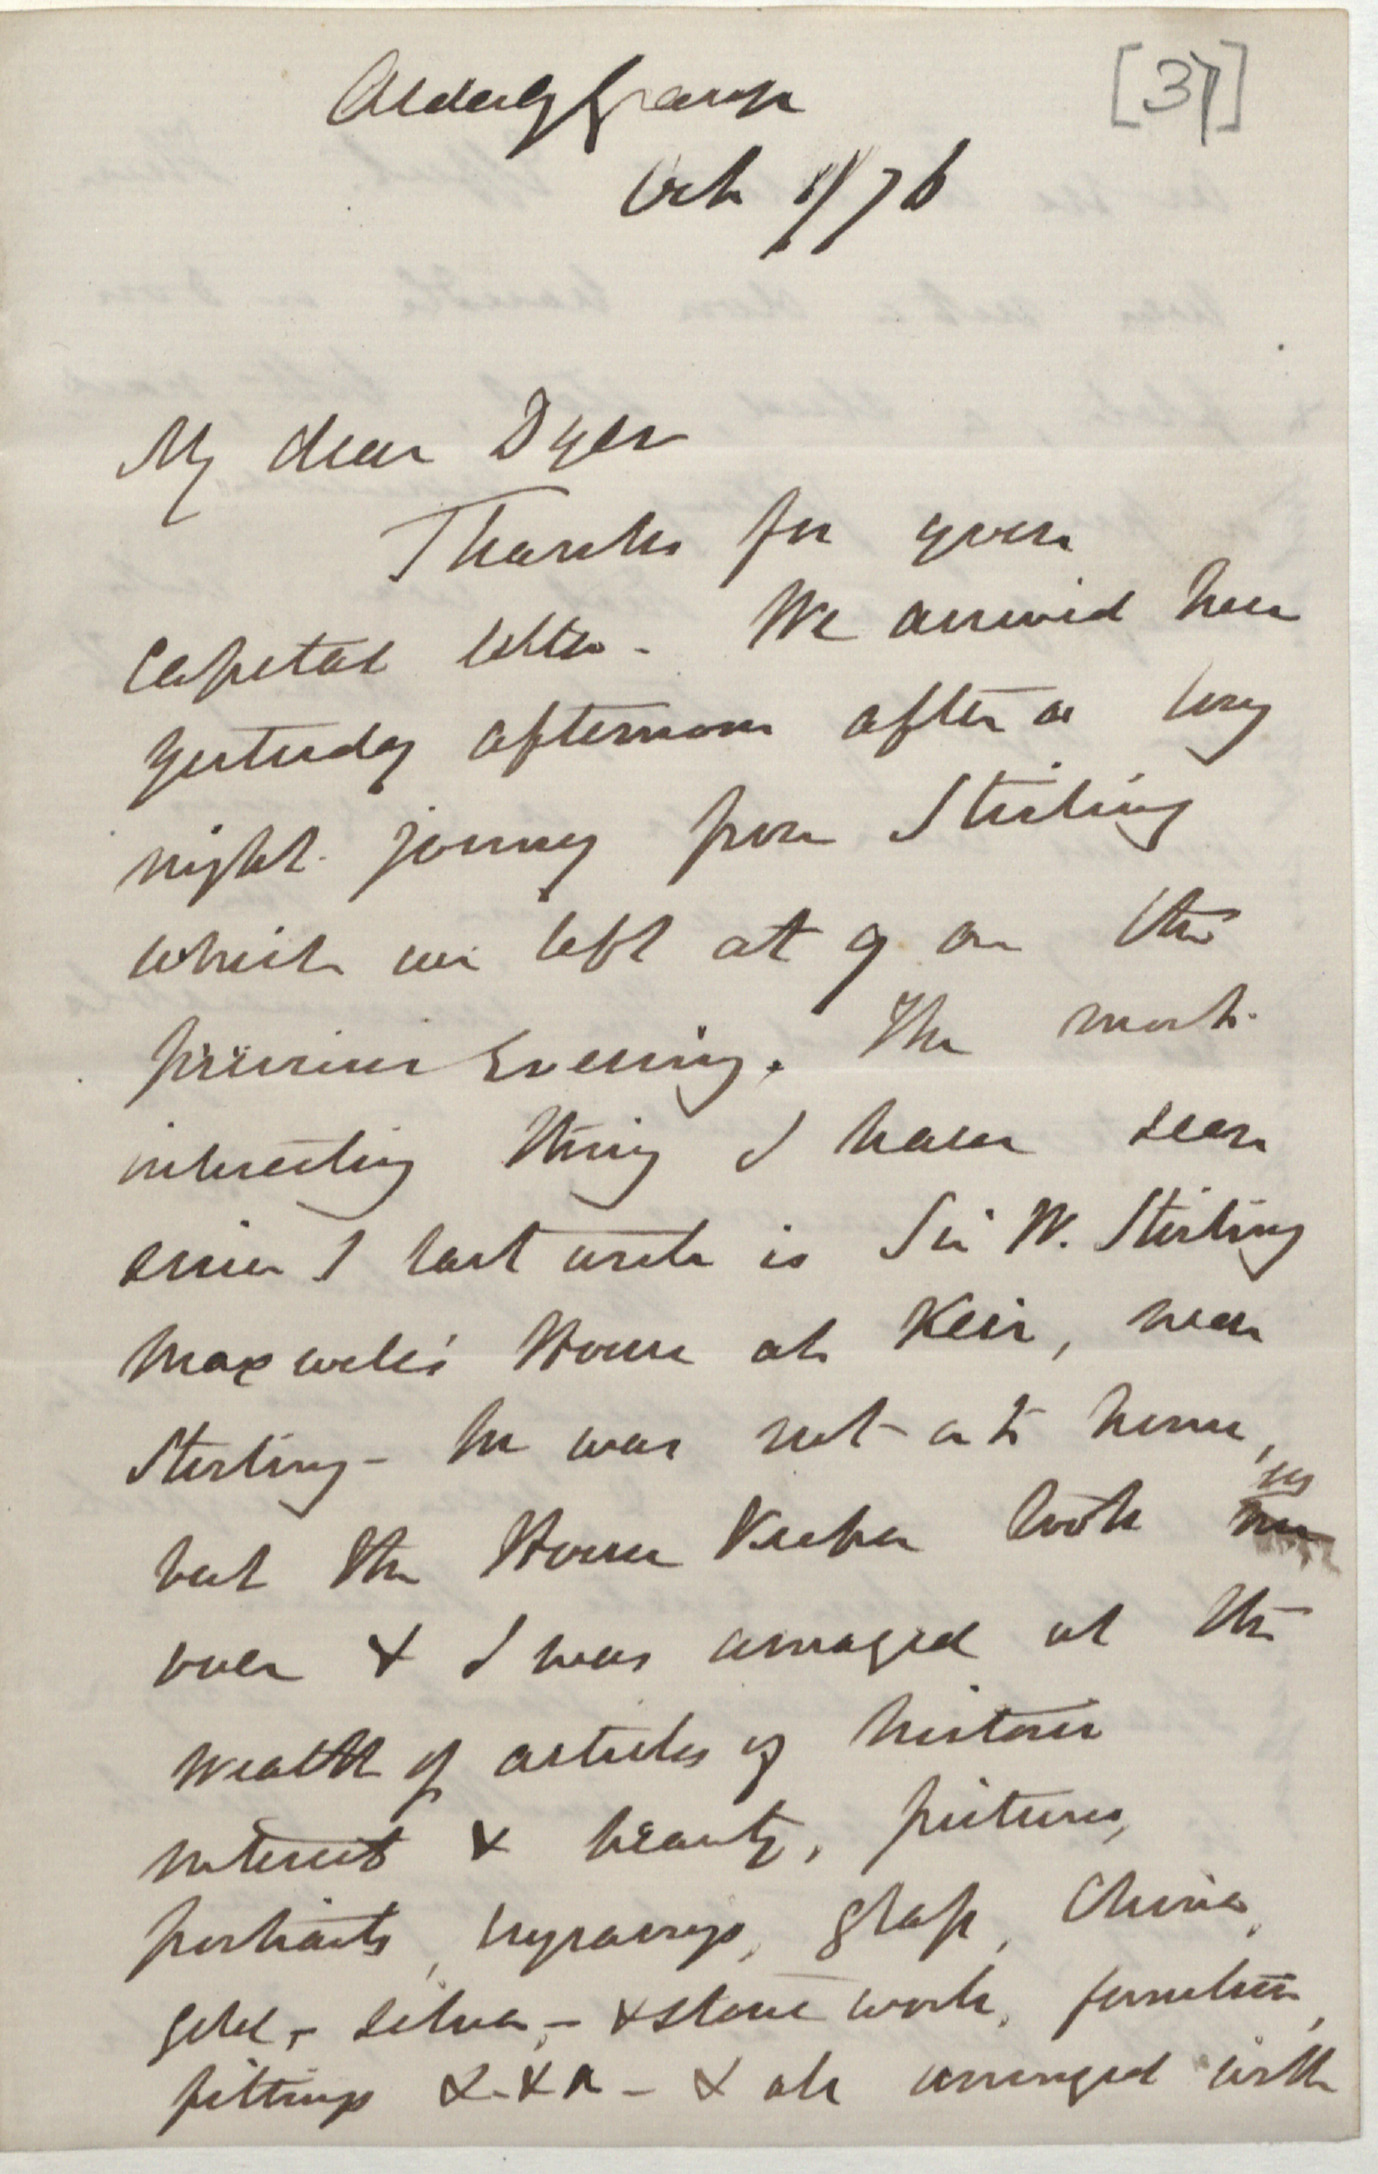 [37]
Alderly Grange
Oct 1/76
My dear Dyer
Thanks for your
capital letter. We arrived here
yesterday afternoon after a long
night journey from Stirling
which we left at 9 on the
previous Evening. The most
interesting thing I have seen
since I last wrote is Sir W. Stirling
Maxwell's House at Keir, near
Stirling – he was not at home,
but the House Keeper took us
over & I was amazed at the
wealth of articles of historic
interest & beauty, pictures,
portraits, engravings, glass, China,
gold, – silver, – & stone work, furniture,
fittings &c &c – & all arranged with